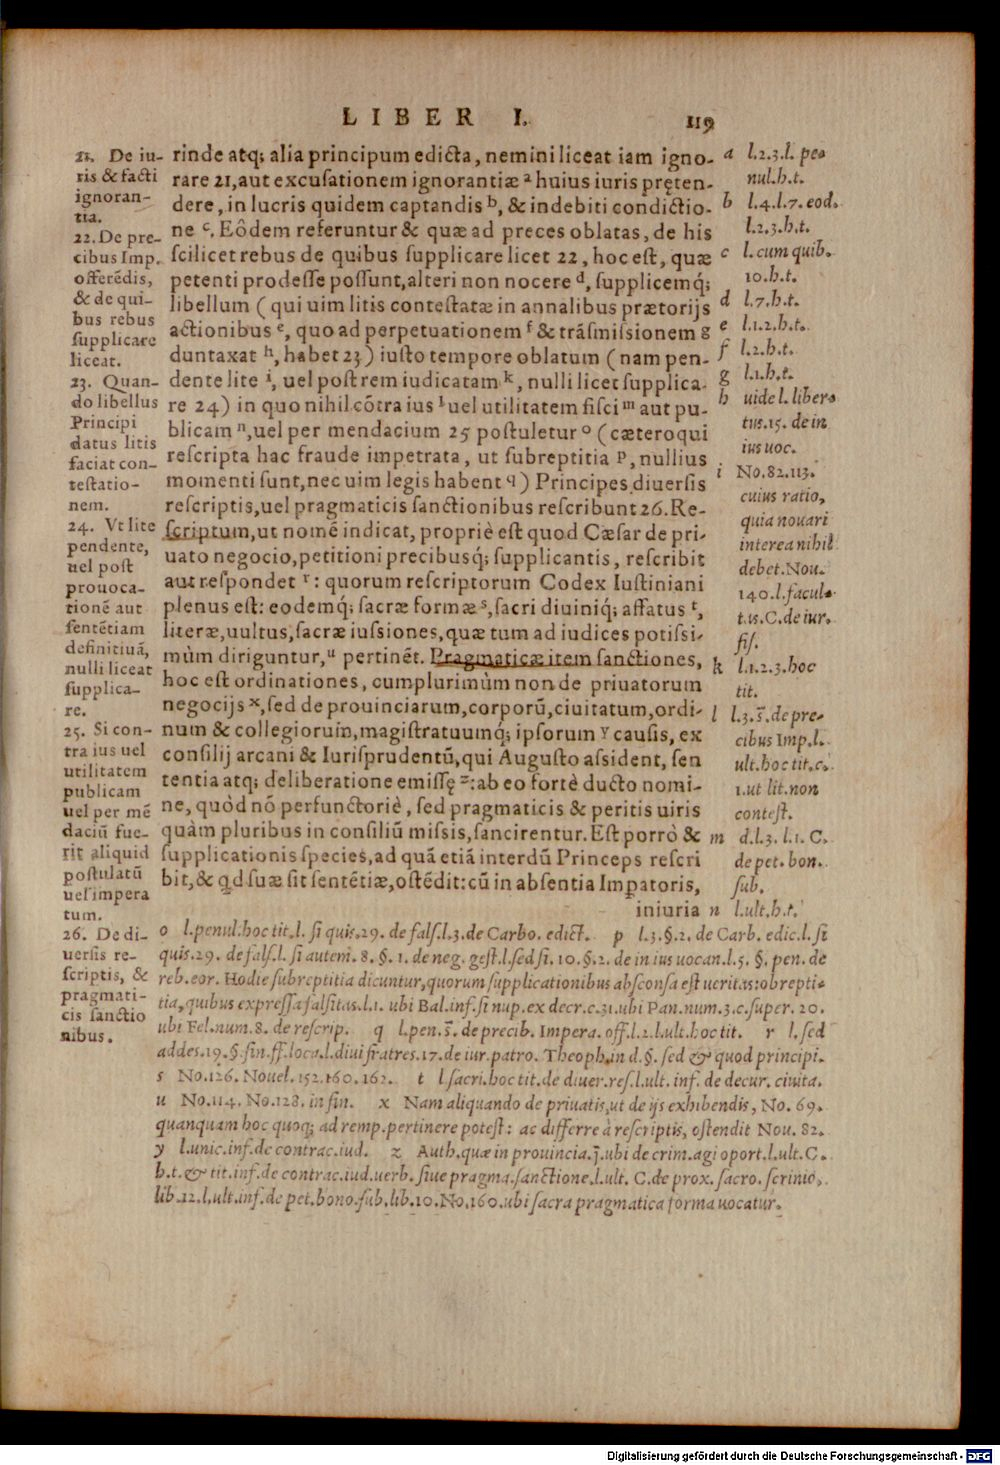 LIBER I. 119
rinde atq; alia principum edicta, nemini liceat iam igno-
rare 21, aut excusationem ignorantiæ ᵃ huius iuris pręten-
dere, in lucris quidem captandis ᵇ, & indebiti condictio-
ne ᶜ. Eôdem referuntur & quæ ad preces oblatas, de his
scilicet rebus de quibus supplicare licet 22, hoc est, quæ
petenti prodesse possunt, alteri non nocere ᵈ, supplicemq́;
libellum ( qui uim litis contestatæ in annalibus prætorijs
actionibus ᵉ, quo ad perpetuationem ᶠ & trāsmissionem g
duntaxat ʰ, habet 23 ) iusto tempore oblatum ( nam pen-
dente lite ⁱ, uel post rem iudicatam ᵏ, nulli licet supplica-
re 24 ) in quo nihil cōtra ius ˡ uel utilitatem fisci ᵐ aut pu-
blicam ⁿ, uel per mendacium 25 postuletur ᵒ ( cæteroqui
rescripta hac fraude impetrata, ut subreptitia ᵖ, nullius
momenti sunt, nec uim legis habent ᑫ ) Principes diuersis
rescriptis, uel pragmaticis sanctionibus rescribunt 26. Re-
scriptum, ut nomē indicat, propriè est quod Cæsar de pri-
uato negocio, petitioni precibusq́; supplicantis, rescribit
aut respondet ʳ: quorum rescriptorum Codex Iustiniani
plenus est: eodemq́; sacræ formæ ˢ, sacri diuiniq́; affatus ᵗ,
literæ, uultus, sacræ iussiones, quæ tum ad iudices potissi-
mùm diriguntur, ᵘ pertinēt. Pragmaticæ item sanctiones,
hoc est ordinationes, cumplurimùm non de priuatorum
negocijs ˣ, sed de prouinciarum, corporū, ciuitatum, ordi-
num & collegiorum, magistratuumq́; ipsorum ʸ causis, ex
consilij arcani & Iurisprudentū, qui Augusto assident, sen
tentia atq; deliberatione emissę ᶻ: ab eo fortè ducto nomi-
ne, quòd nō perfunctoriè, sed pragmaticis & peritis uiris
quàm pluribus in consiliū missis, sancirentur. Est porrò &
supplicationis species, ad quā etiā interdū Princeps rescri
bit, & qd suæ sit sentētiæ, ostēdit: cū in absentia Impatoris,
iniuria
21. De iu-
ris & facti
ignoran-
tia.
22. De pre-
cibus Imp.
offerēdis,
& de qui-
bus rebus
supplicare
liceat.
23. Quan-
do libellus
Principi
datus litis
faciat con-
testatio-
nem.
24. Vt lite
pendente,
uel post
prouoca-
tionē aut
sentētiam
definitiuā,
nulli liceat
supplica-
re.
25. Si con-
tra ius uel
utilitatem
publicam
uel per mē
daciū fue-
rit aliquid
postulatū
uel impera
tum.
26. De di-
uersis re-
scriptis, &
pragmati-
cis sanctio
nibus.
a l.2.3.l. pe-
nul.h.t.
b l.4.l.7. eod.
l.2.3.h.t.
c l.cum quib.
10.h.t.
d l.7.h.t.
e l.1.2.h.t.
f l.2.h.t.
g l.1.h.t.
h uide l. liber-
tus.15. de in
ius uoc.
i No.82.113.
cuius ratio,
quia nouari
interea nihil
debet. Nou.
140.l.facul-
t.is.C.de iur.
fis.
k l.1.2.3.hoc
tit.
l l.3.s̄.de pre-
cibus Imp.l.
ult.hoc tit.c.
1.ut lit.non
contest.
m d.l.3. l.1. C.
de pet. bon.
sub.
n l.ult.h.t.
o l.penul.hoc tit.l. si quis.29. de fals.l.3.de Carbo. edict. p l.3.§.2. de Carb. edic.l. si
quis.29. de fals.l. si autem. 8. §. 1. de neg. gest.l.sed si. 10. §.2. de in ius uocan.l.5. §. pen. de
reb.eor. Hodie subreptitia dicuntur, quorum supplicationibus absconsa est ueritas: obrepti-
tia, quibus expressa falsitas.l.1. ubi Bal.inf.si nup. ex decr.c.31.ubi Pan.num.3.c.super. 20.
ubi Fel.num.8. de rescrip. q l.pen.s̄.de precib. Impera. off.l.2.l.ult.hoc tit. r l.sed
addes.19.§.fin.ff.loca.l.diui fratres.17.de iur.patro. Theoph.in d.§. sed & quod principi.
s No.126. Nouel.152.160.162. t l sacri.hoc tit.de diuer.res.l.ult. inf. de decur. ciuita.
u No.114. No.128. in fin. x Nam aliquando de priuatis, ut de ijs exhibendis, No. 69.
quanquam hoc quoq; ad remp.pertinere potest: ac differre à rescriptis, ostendit Nou. 82.
y l.unic.inf.de contrac.iud. z Auth.quæ in prouincia.j̄.ubi de crim.agi oport.l.ult.C.
h.t.& tit.inf.de contrac.iud.uerb. siue pragma.sanctione.l.ult. C.de prox. sacro. scrinio.
lib.12.l.ult.inf.de pet.bono.sub.lib.10.No.160.ubi sacra pragmatica forma uocatur.
Digitalisierung gefördert durch die Deutsche Forschungsgemeinschaft - DFG